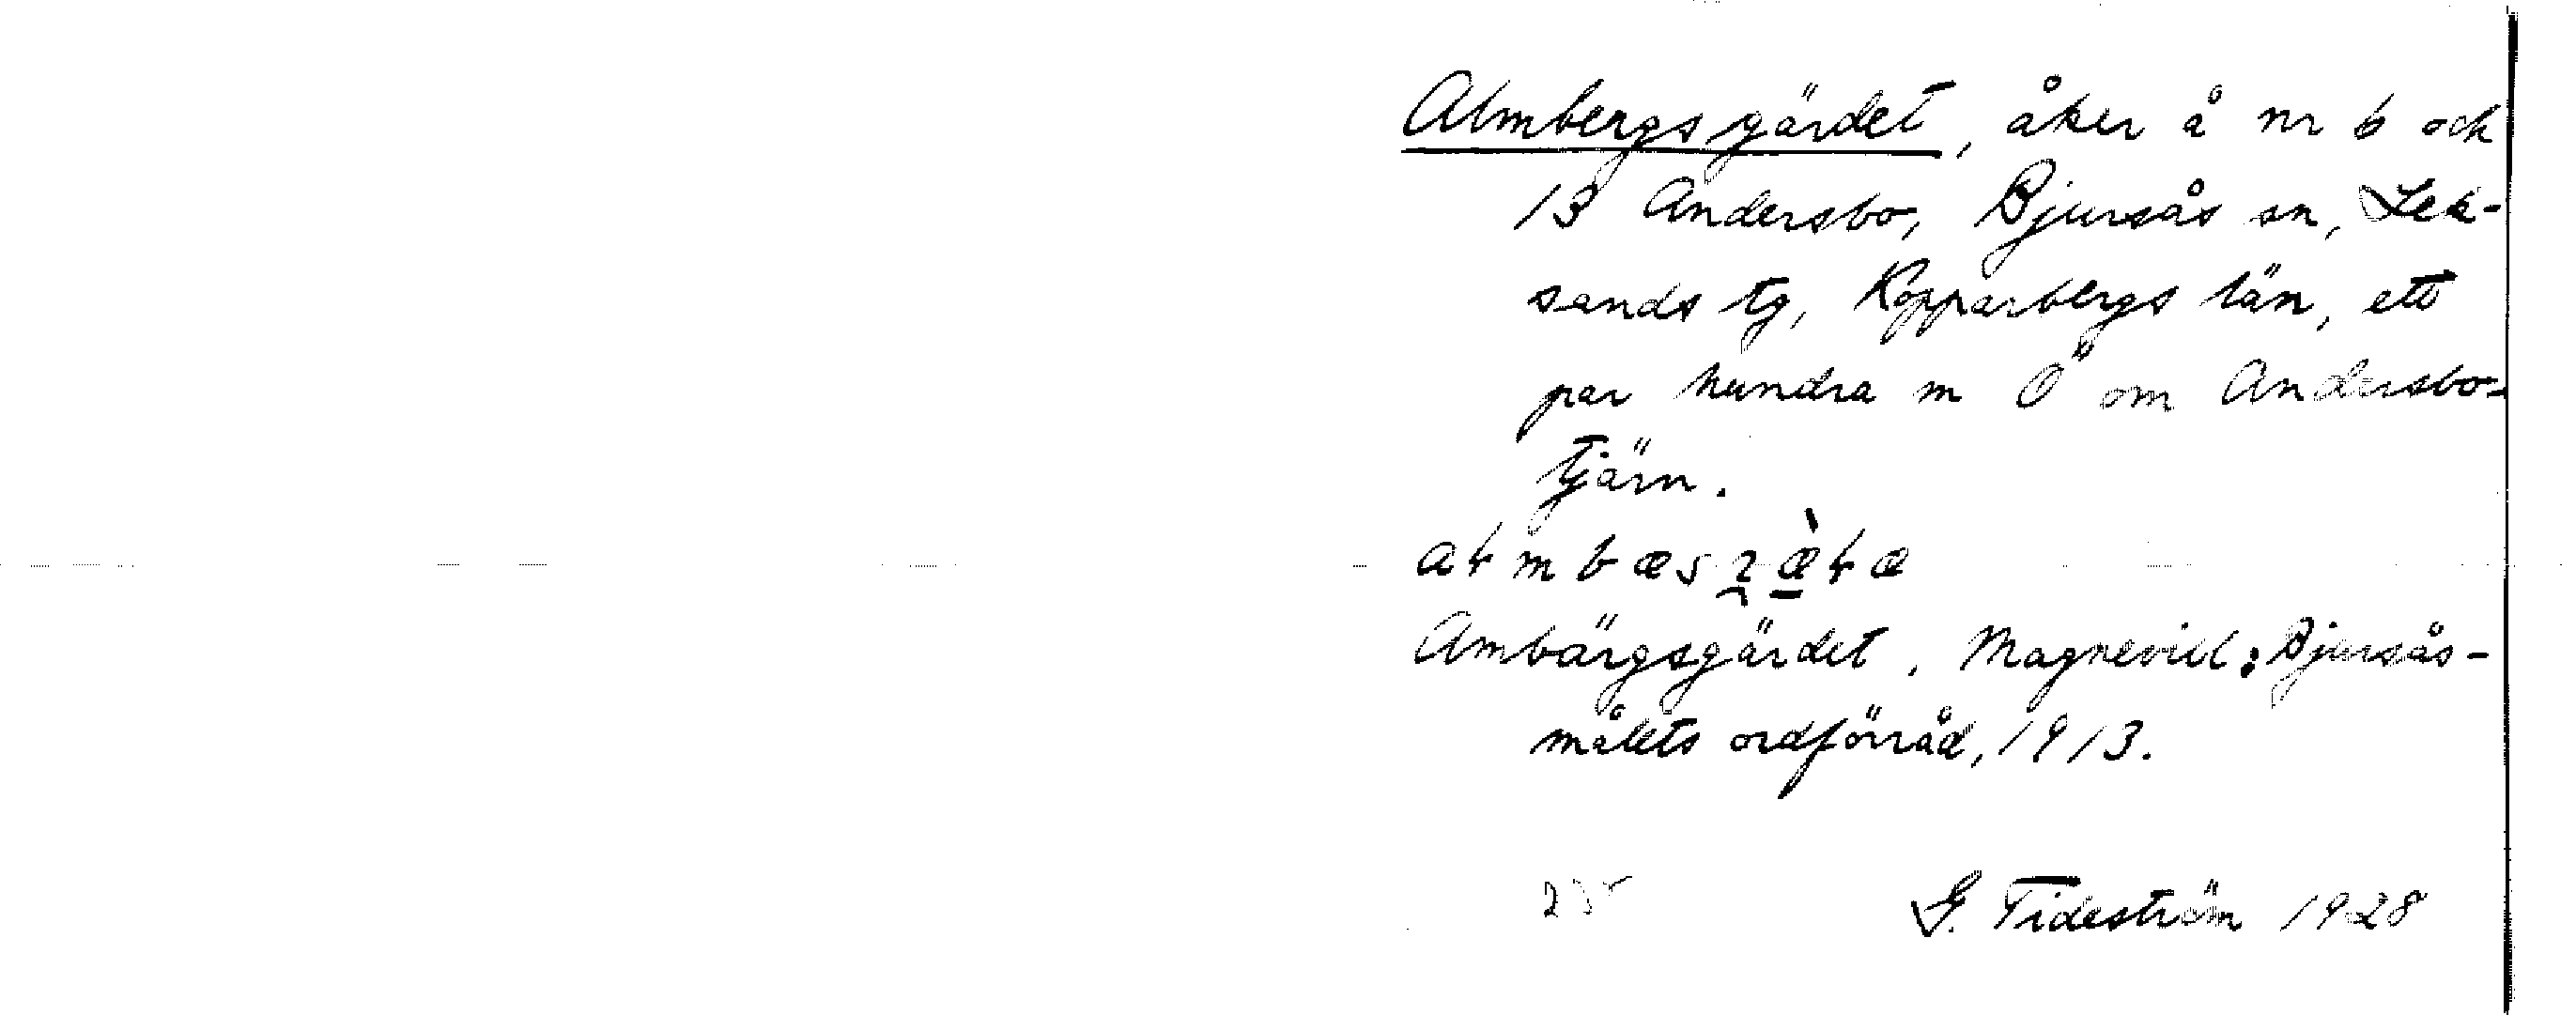 Almbergsgärdet, åker å nr 6 och
13 Andersbo, Bjursås sn, Lek-
sands tg, Kopparbergs län, ett
par hundra m Ö om Andersbo-
tjärn.
Ambärgsgärdet. Magnevill: Bjursås-
målets ordförråd, 1913.
25 G. Tideström 1928